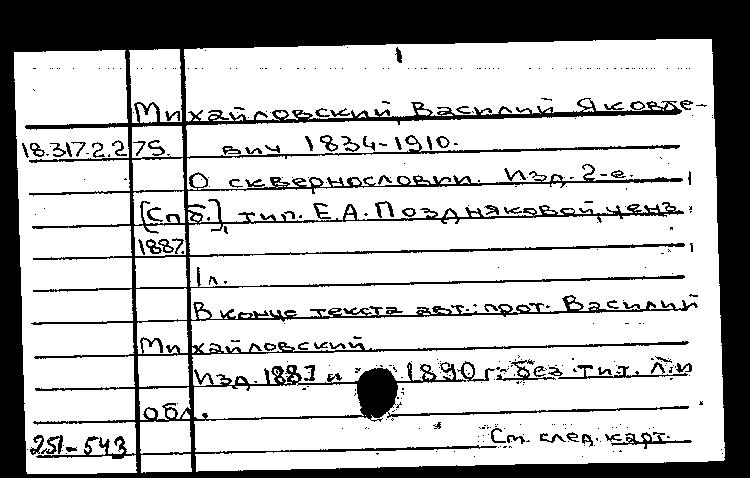 1
Михайловский, Василий Яковле-
18.317.2.275. вич, 1834-1910.
О сквернословии. Изд. 2-е.
[Спб.], тип. Е.А. Поздняковой, ценз.
1887.
1 л.
В конце текста авт.: прот. Василий
Михайловский.
Изд. 1887 и 1890 г. без тит. л. и
обл.
251-543 См. след. карт.